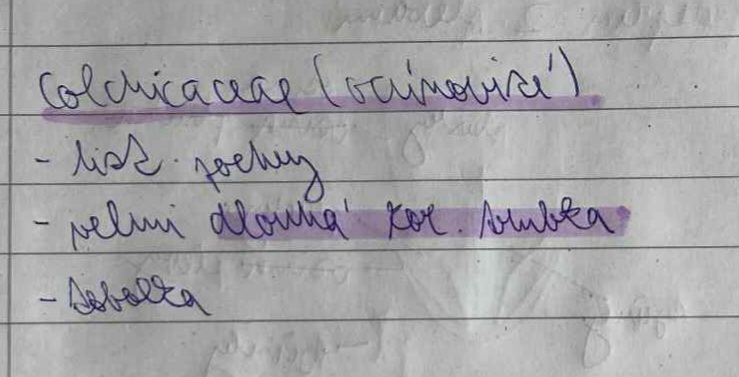 Colchicaceae (ocúnovité)
- list. pochvy
- velmi dlouhá kor. trubka
- tobolka